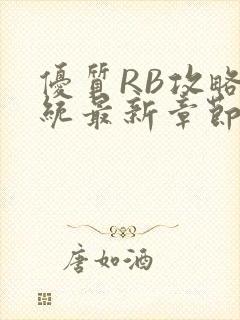 優質RB攻略
統最新章節
唐如酒